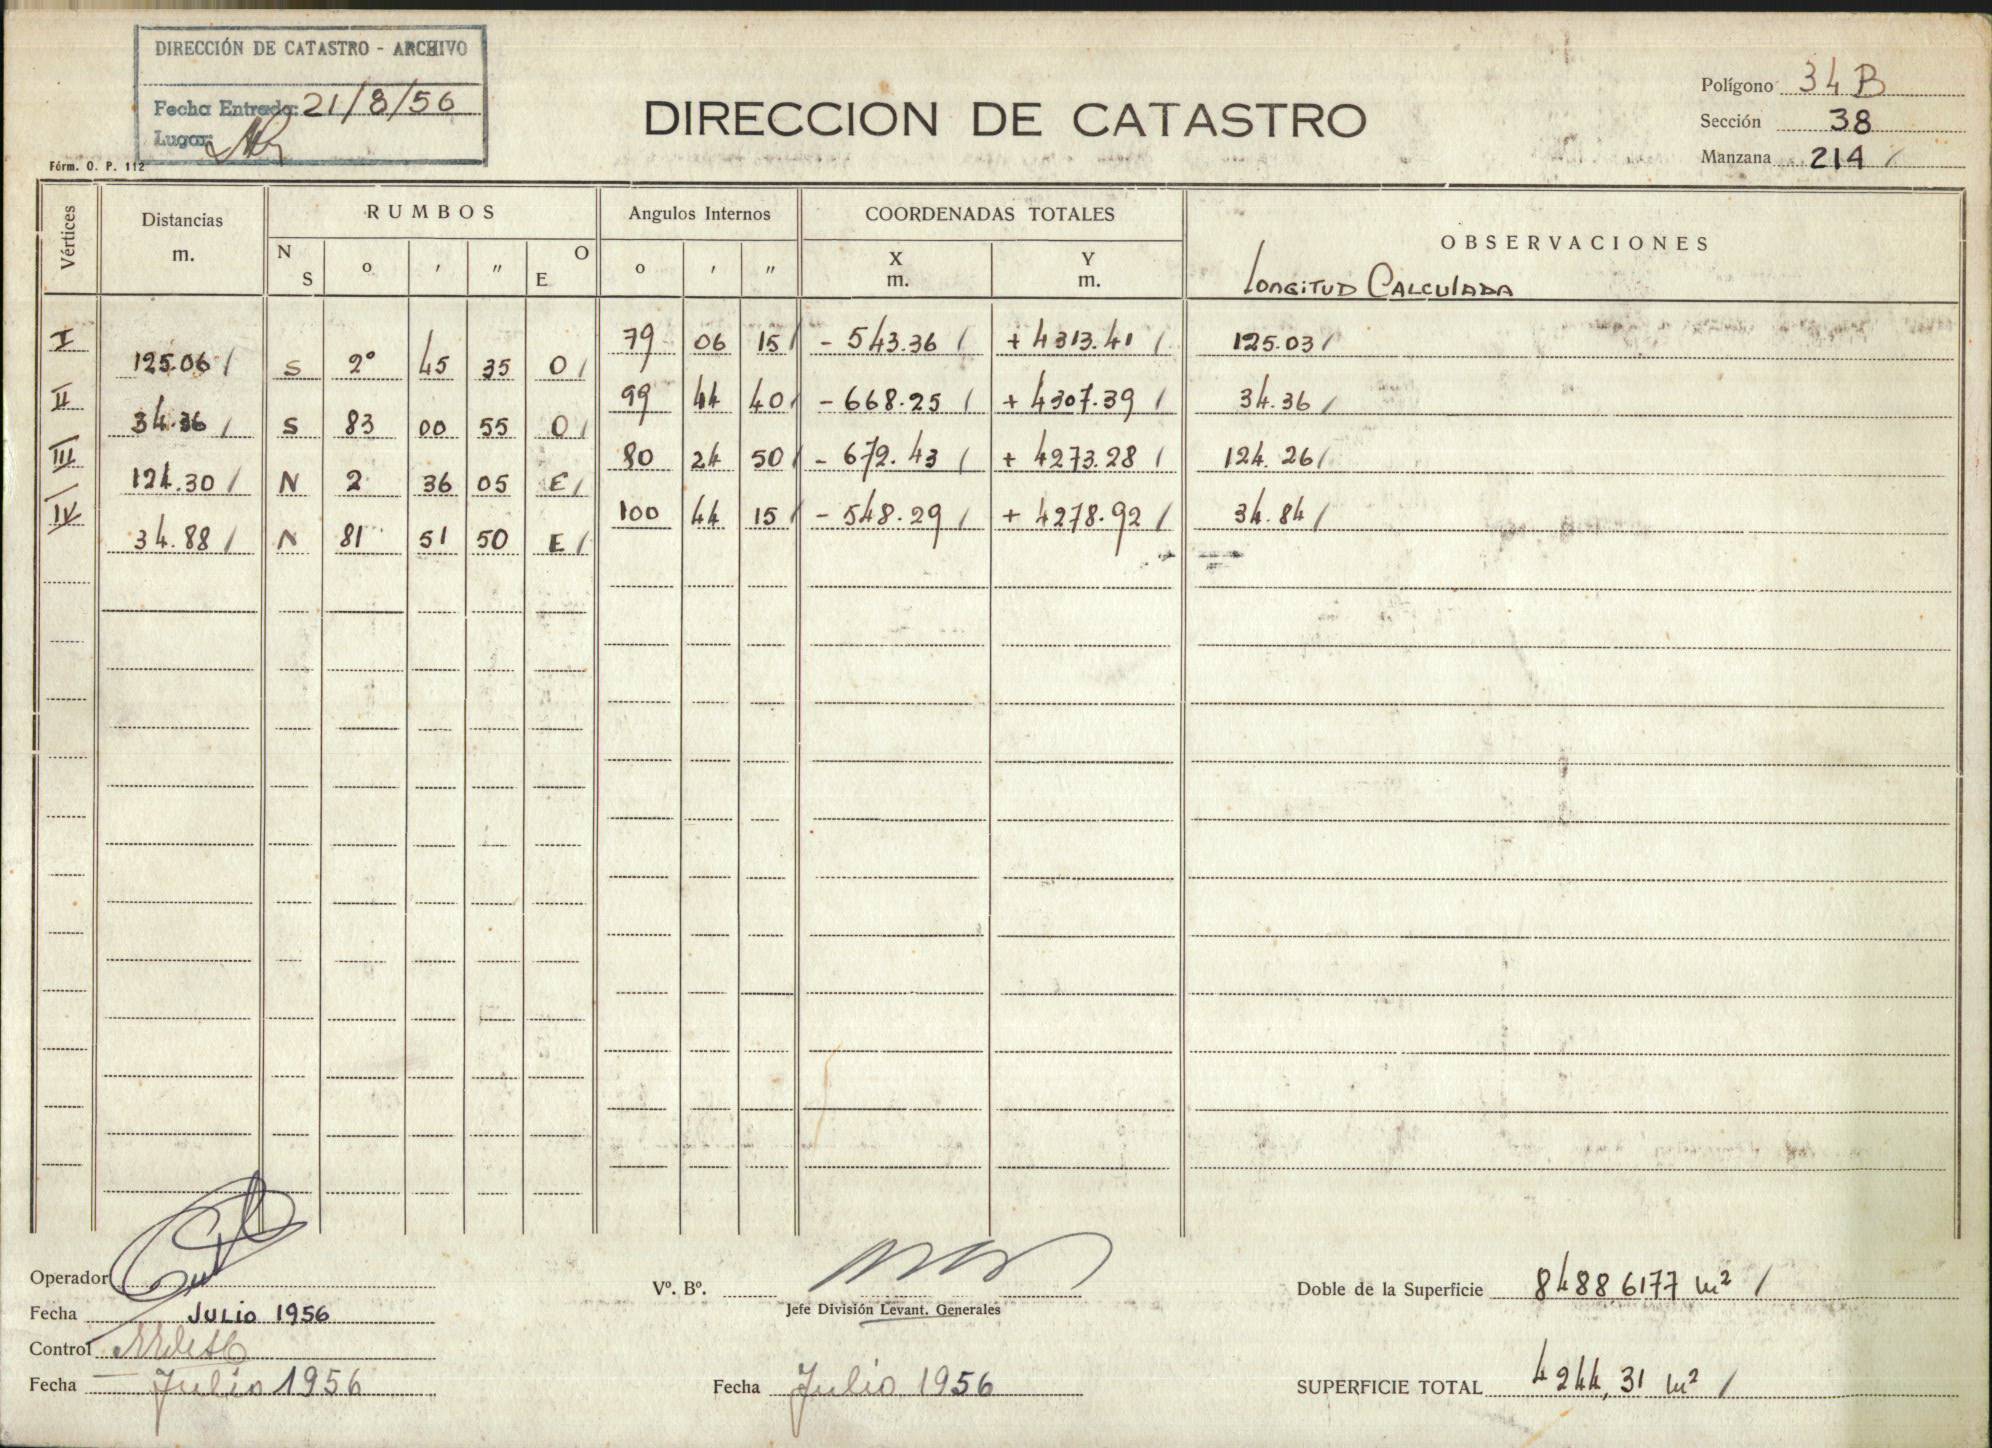 DIRECCIÓN DE CATASTRO - ARCHIVO
Fecha Entrada: 21/8/56
Lugar:
Fórm. O. P. 112
DIRECCION DE CATASTRO
Polígono 34 B
Sección 38
Manzana 214 /
Vértices Distancias m. RUMBOS Angulos Internos COORDENADAS TOTALES OBSERVACIONES
N S o ' " O E o ' " X m. Y m. Longitud Calculada
I 79 06 15 / - 543.36 / + 4313.41 / 125.03 /
125.06 / S 2° 45 35 O /
II 99 44 40 / - 668.25 / + 4307.39 / 34.36 /
34.36 / S 83 00 55 O /
III 80 24 50 / - 672.43 / + 4273.28 / 124.26 /
124.30 / N 2 36 05 E /
IV 100 44 15 / - 548.29 / + 4278.92 / 34.84 /
34.88 / N 81 51 50 E /
Operador
Fecha JULIO 1956
Control
Fecha Julio 1956
Vº. Bº.
Jefe División Levant. Generales
Fecha Julio 1956
Doble de la Superficie 84886177 m² /
SUPERFICIE TOTAL 4244,31 m² /